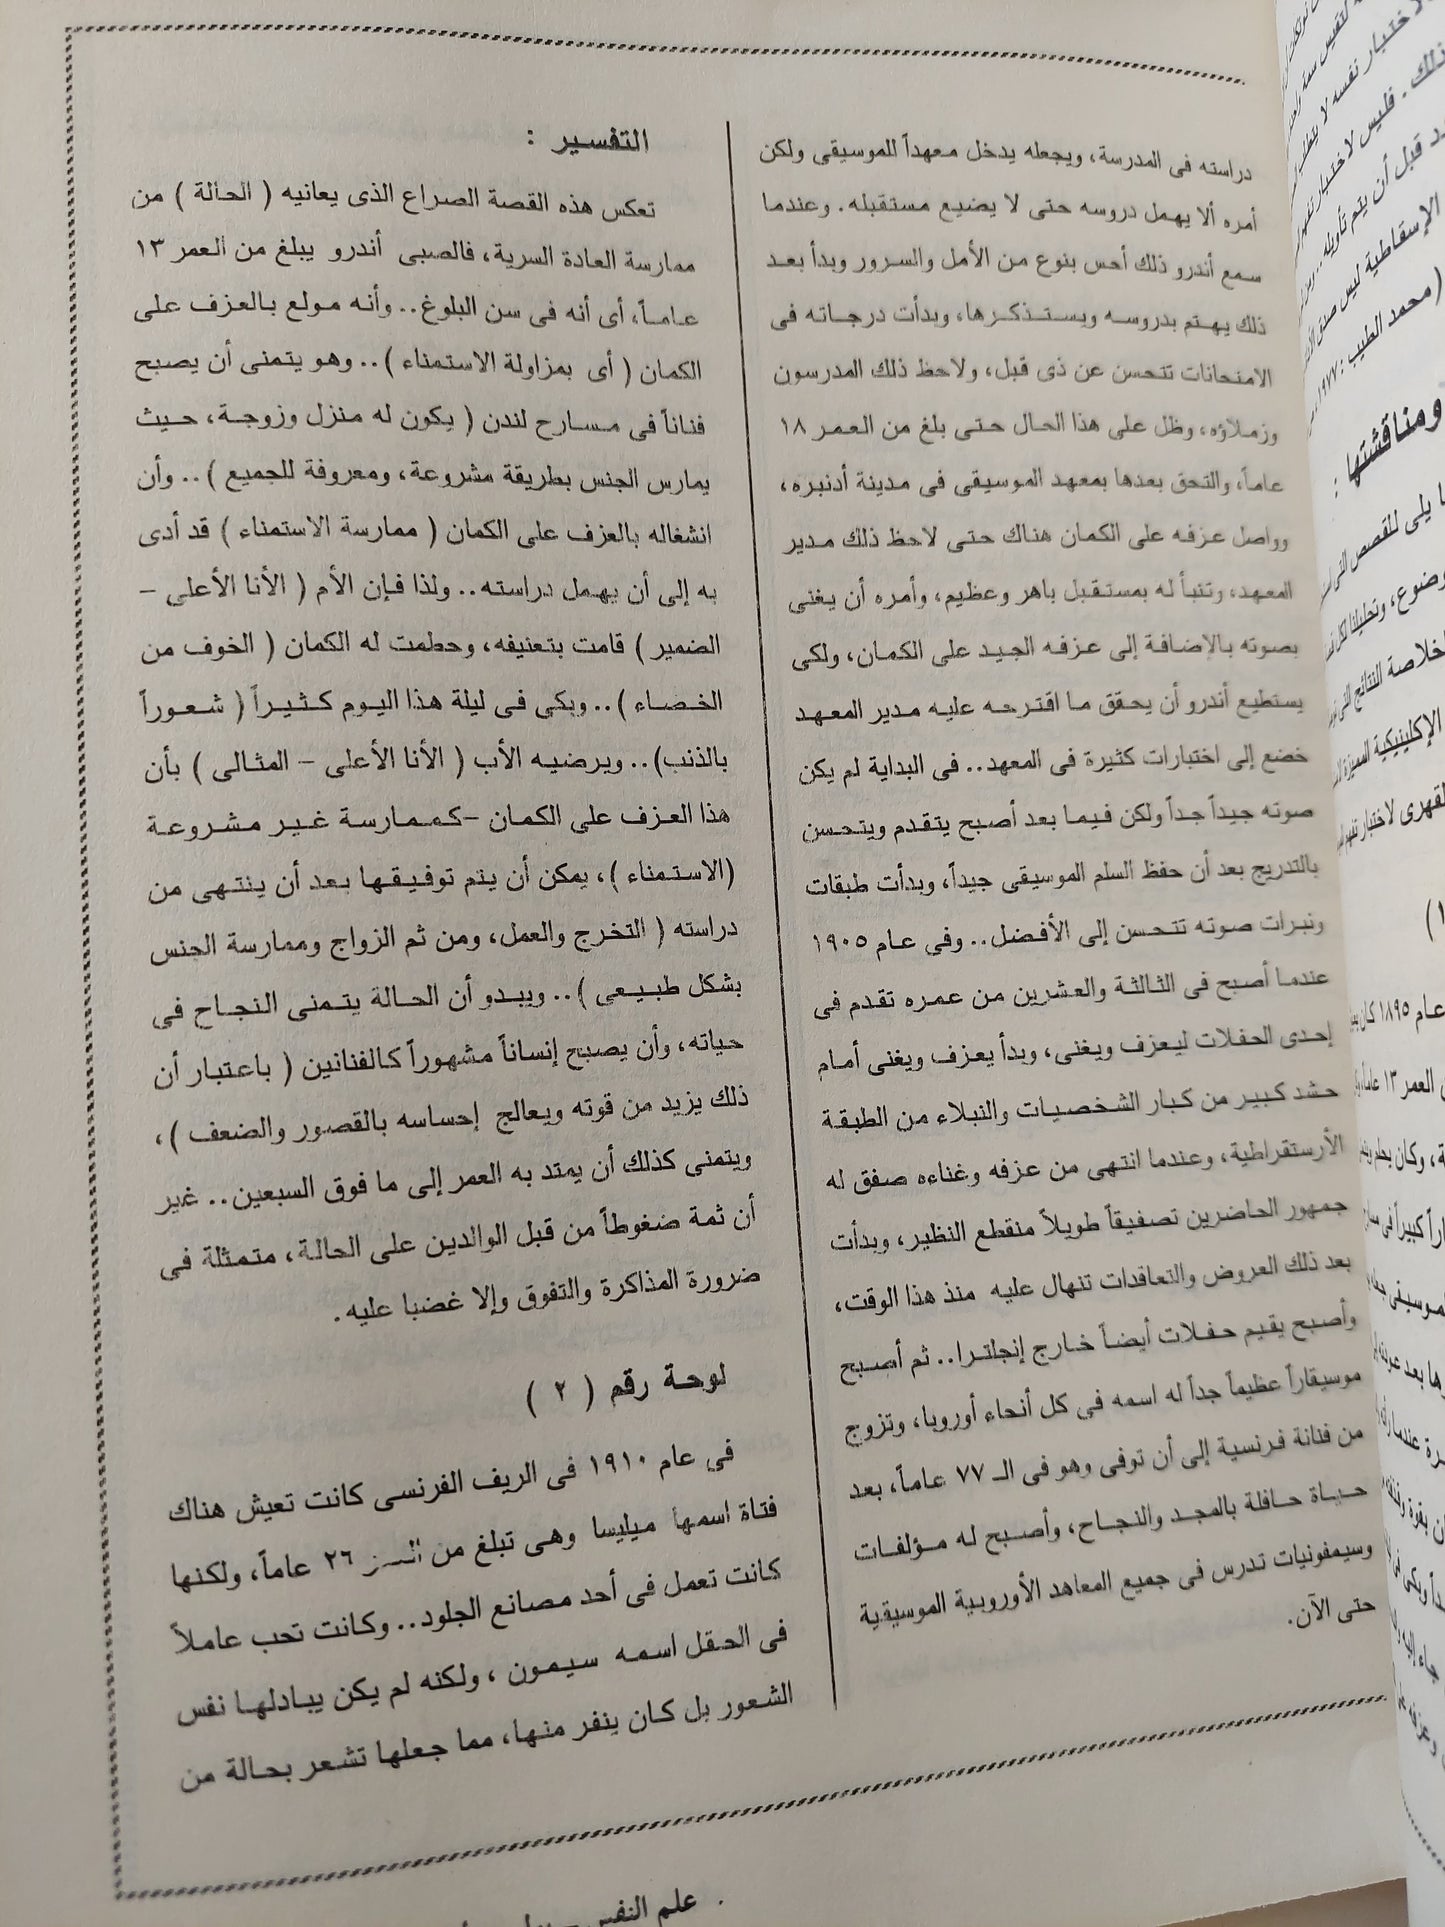 دراسته فى المدرسة، ويجعله يدخل معهداً للموسيقى ولكن
أمره ألا يهمل دروسه حتى لا يضيع مستقبله. وعندما
سمع أندرو ذلك أحس بنوع من الأمل والسرور وبدأ بعد
ذلك يهتم بدروسه ويستذكرها، وبدأت درجاته فى
الامتحانات تتحسن عن ذى قبل، ولاحظ ذلك المدرسون
وزملاؤه، وظل على هذا الحال حتى بلغ من العمر ١٨
عاماً، والتحق بعدها بمعهد الموسيقى فى مدينة أدنبره،
وواصل عزفه على الكمان هناك حتى لاحظ ذلك مدير
المعهد، وتنبأ له بمستقبل باهر وعظيم، وأمره أن يغنى
بصوته بالإضافة إلى عزفه الجيد على الكمان، ولكى
يستطيع أندرو أن يحقق ما اقترحه عليه مدير المعهد
خضع إلى اختبارات كثيرة فى المعهد.. فى البداية لم يكن
صوته جيداً جداً ولكن فيما بعد أصبح يتقدم ويتحسن
بالتدريج بعد أن حفظ السلم الموسيقى جيداً، وبدأت طبقات
ونبرات صوته تتحسن إلى الأفضل.. وفى عام ١٩٠٥
عندما أصبح فى الثالثة والعشرين من عمره تقدم فى
إحدى الحفلات ليعزف ويغنى، وبدأ يعزف ويغنى أمام
حشد كبير من كبار الشخصيات والنبلاء من الطبقة
الأرستقراطية، وعندما انتهى من عزفه وغناءه صفق له
جمهور الحاضرين تصفيقاً طويلاً منقطع النظير، وبدأت
بعد ذلك العروض والتعاقدات تنهال عليه منذ هذا الوقت،
وأصبح يقيم حفلات أيضاً خارج إنجلترا.. ثم أصبح
موسيقاراً عظيماً جداً له اسمه فى كل أنحاء أوروبا، وتزوج
من فنانة فرنسية إلى أن توفى وهو فى الـ ٧٧ عاماً، بعد
حياة حافلة بالمجد والنجاح، وأصبح له مؤلفات
وسيمفونيات تدرس فى جميع المعاهد الأوروبية الموسيقية
حتى الآن.
التفسير :
تعكس هذه القصة الصراع الذى يعانيه ( الحالة ) من
ممارسة العادة السرية، فالصبى أندرو يبلغ من العمر ١٣
عاماً، أى أنه فى سن البلوغ.. وأنه مولع بالعزف على
الكمان ( أى بمزاولة الاستمناء ).. وهو يتمنى أن يصبح
فناناً فى مسارح لندن ( يكون له منزل وزوجة، حيث
يمارس الجنس بطريقة مشروعة، ومعروفة للجميع ).. وأن
انشغاله بالعزف على الكمان ( ممارسة الاستمناء ) قد أدى
به إلى أن يهمل دراسته.. ولذا فإن الأم ( الأنا الأعلى -
الضمير ) قامت بتعنيفه، وحطمت له الكمان ( الخوف من
الخصاء ).. وبكى فى ليلة هذا اليوم كثيراً ( شعوراً
بالذنب).. ويرضيه الأب ( الأنا الأعلى - المثالى ) بأن
هذا العزف على الكمان -كممارسة غير مشروعة
(الاستمناء )، يمكن أن يتم توفيقها بعد أن ينتهى من
دراسته ( التخرج والعمل، ومن ثم الزواج وممارسة الجنس
بشكل طبيعى ).. ويبدو أن الحالة يتمنى النجاح فى
حياته، وأن يصبح إنساناً مشهوراً كالفنانين ( باعتبار أن
ذلك يزيد من قوته ويعالج إحساسه بالقصور والضعف )،
ويتمنى كذلك أن يمتد به العمر إلى ما فوق السبعين.. غير
أن ثمة ضغوطاً من قبل الوالدين على الحالة، متمثلة فى
ضرورة المذاكرة والتفوق وإلا غضبا عليه.
لوحة رقم ( ٢ )
فى عام ١٩١٠ فى الريف الفرنسى كانت تعيش هناك
فتاة اسمها ميليسا وهى تبلغ من ٢٦ عاماً، ولكنها
كانت تعمل فى أحد مصانع الجلود.. وكانت تحب عاملاً
فى الحقل اسمه سيمون ، ولكنه لم يكن يبادلها نفس
الشعور بل كان ينفر منها، مما جعلها تشعر بحالة من
علم النفس